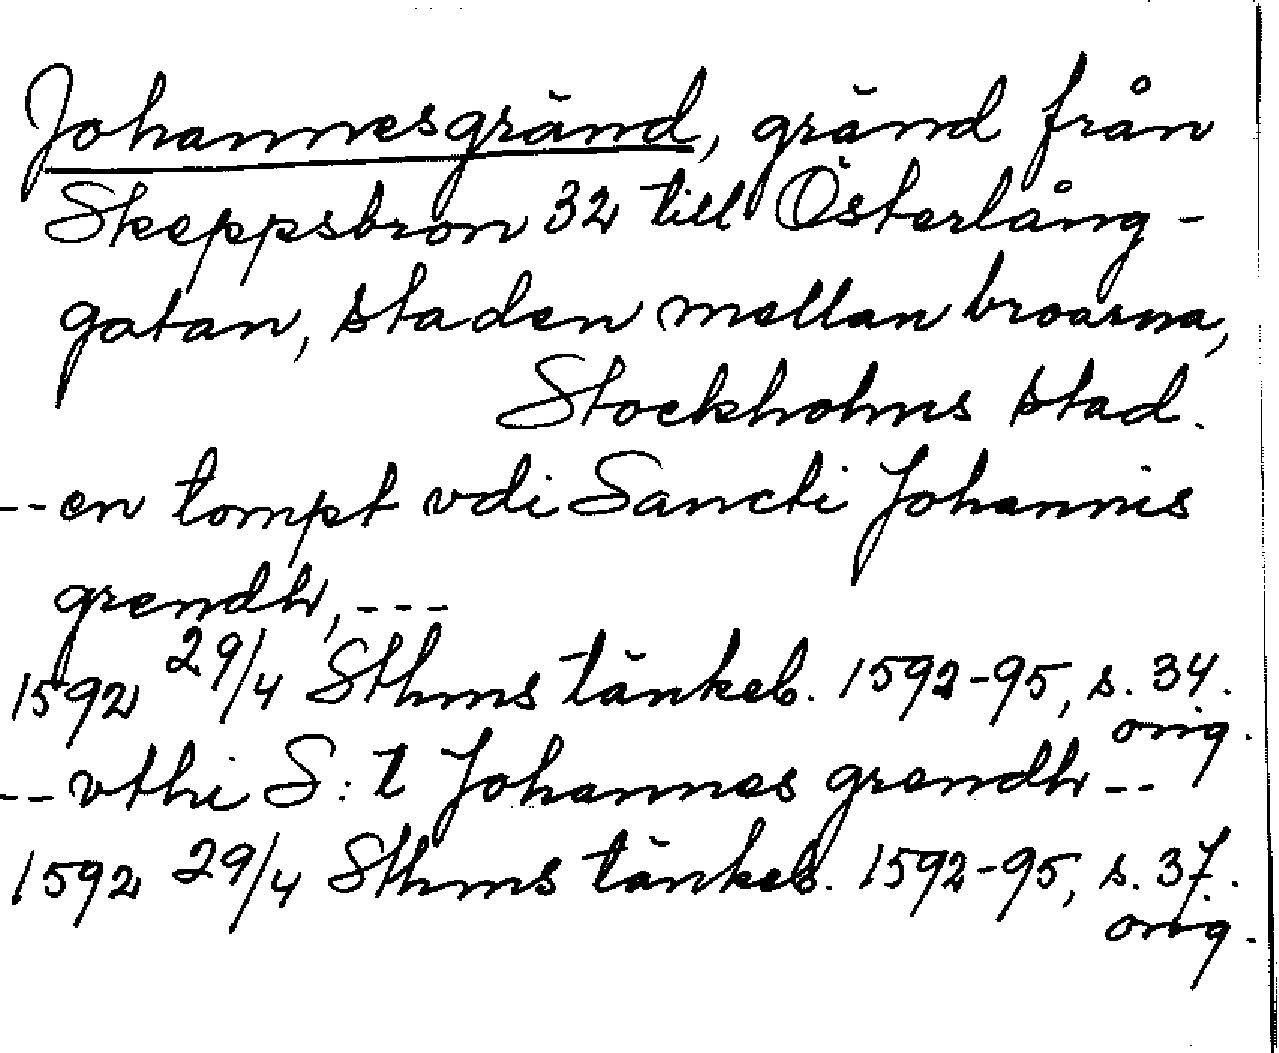 Johannesgränd, gränd från
Skeppsbron 32 till Österlång-
gatan, staden mellan broarna,
Stockholms stad.
--en tompt vdi Sancti Johannis
grendh, ---
1592 29/4 Sthms tänkeb. 1592-95, s. 34.
orig.
--vthi S:t Johannes grendh--
1592 29/4 Sthms tänkeb. 1592-95, s. 37.
orig.